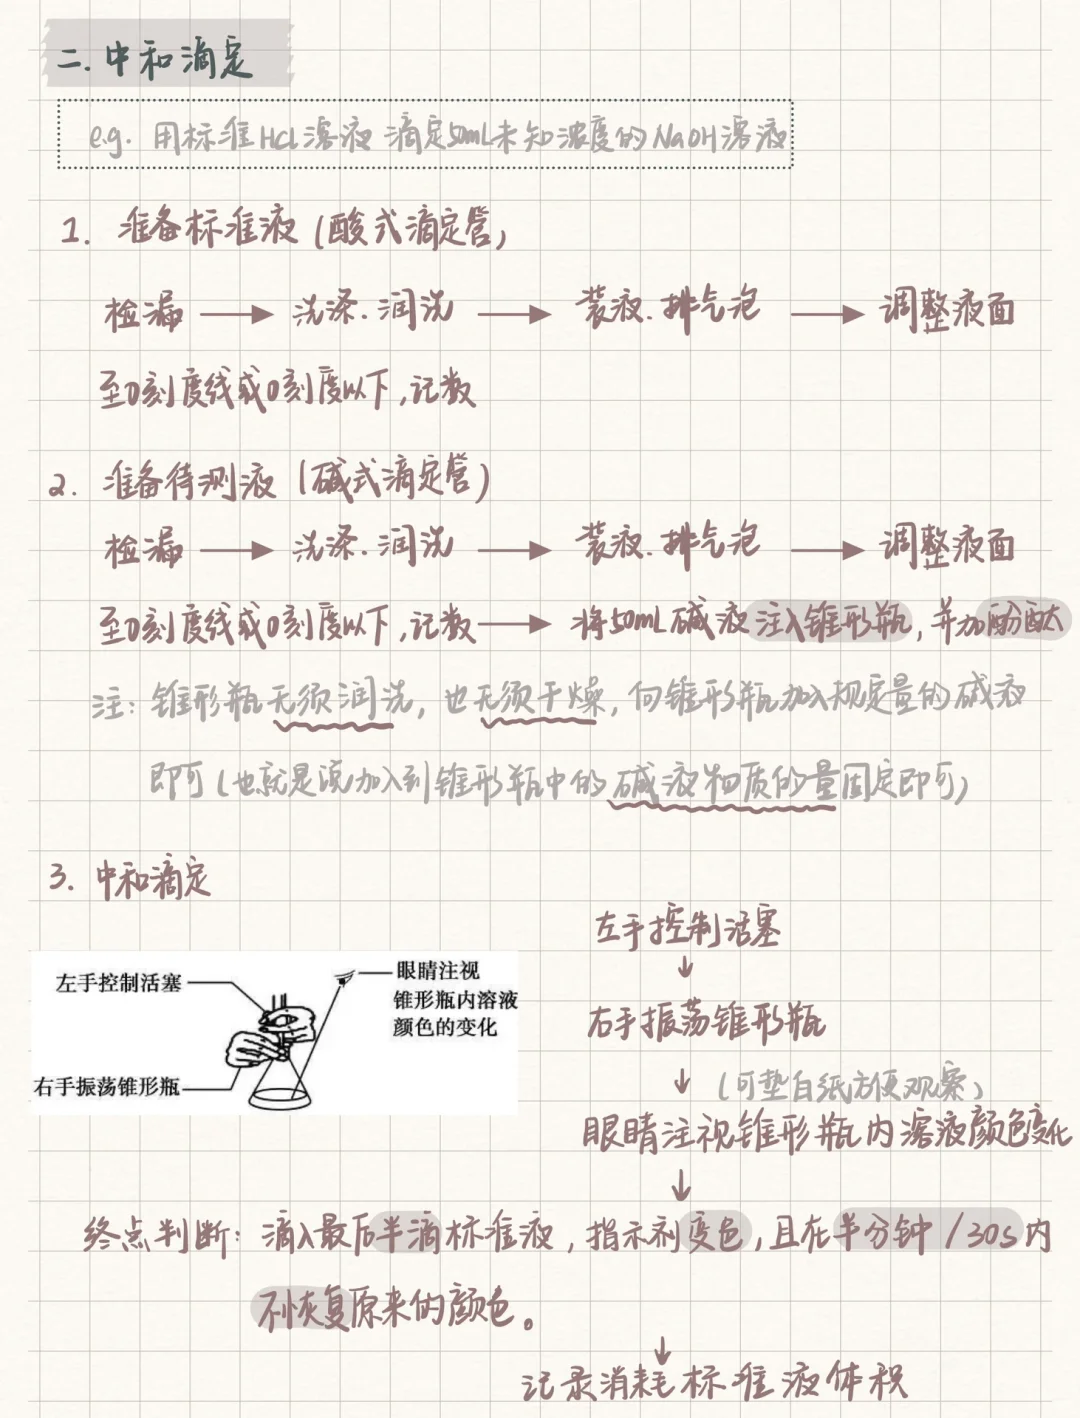 二.中和滴定
e.g. 用标准HCl溶液 滴定50mL未知浓度的NaOH溶液
1. 准备标准液(酸式滴定管)
检漏 → 洗涤.润洗 → 装液.排气泡 → 调整液面
至0刻度线或0刻度以下,记数
2. 准备待测液(碱式滴定管)
检漏 → 洗涤.润洗 → 装液.排气泡 → 调整液面
至0刻度线或0刻度以下,记数 → 将50mL碱液注入锥形瓶,并加酚酞
注:锥形瓶无须润洗,也无须干燥,向锥形瓶加入规定量的碱液
即可(也就是说加入到锥形瓶中的碱液物质的量固定即可)
3. 中和滴定
左手控制活塞
眼睛注视
锥形瓶内溶液
颜色的变化
右手振荡锥形瓶
左手控制活塞
↓
右手振荡锥形瓶
↓ (可垫白纸方便观察)
眼睛注视锥形瓶内溶液颜色变化
↓
终点判断:滴入最后半滴标准液,指示剂变色,且在半分钟/30s内
不恢复原来的颜色。
↓
记录消耗标准液体积